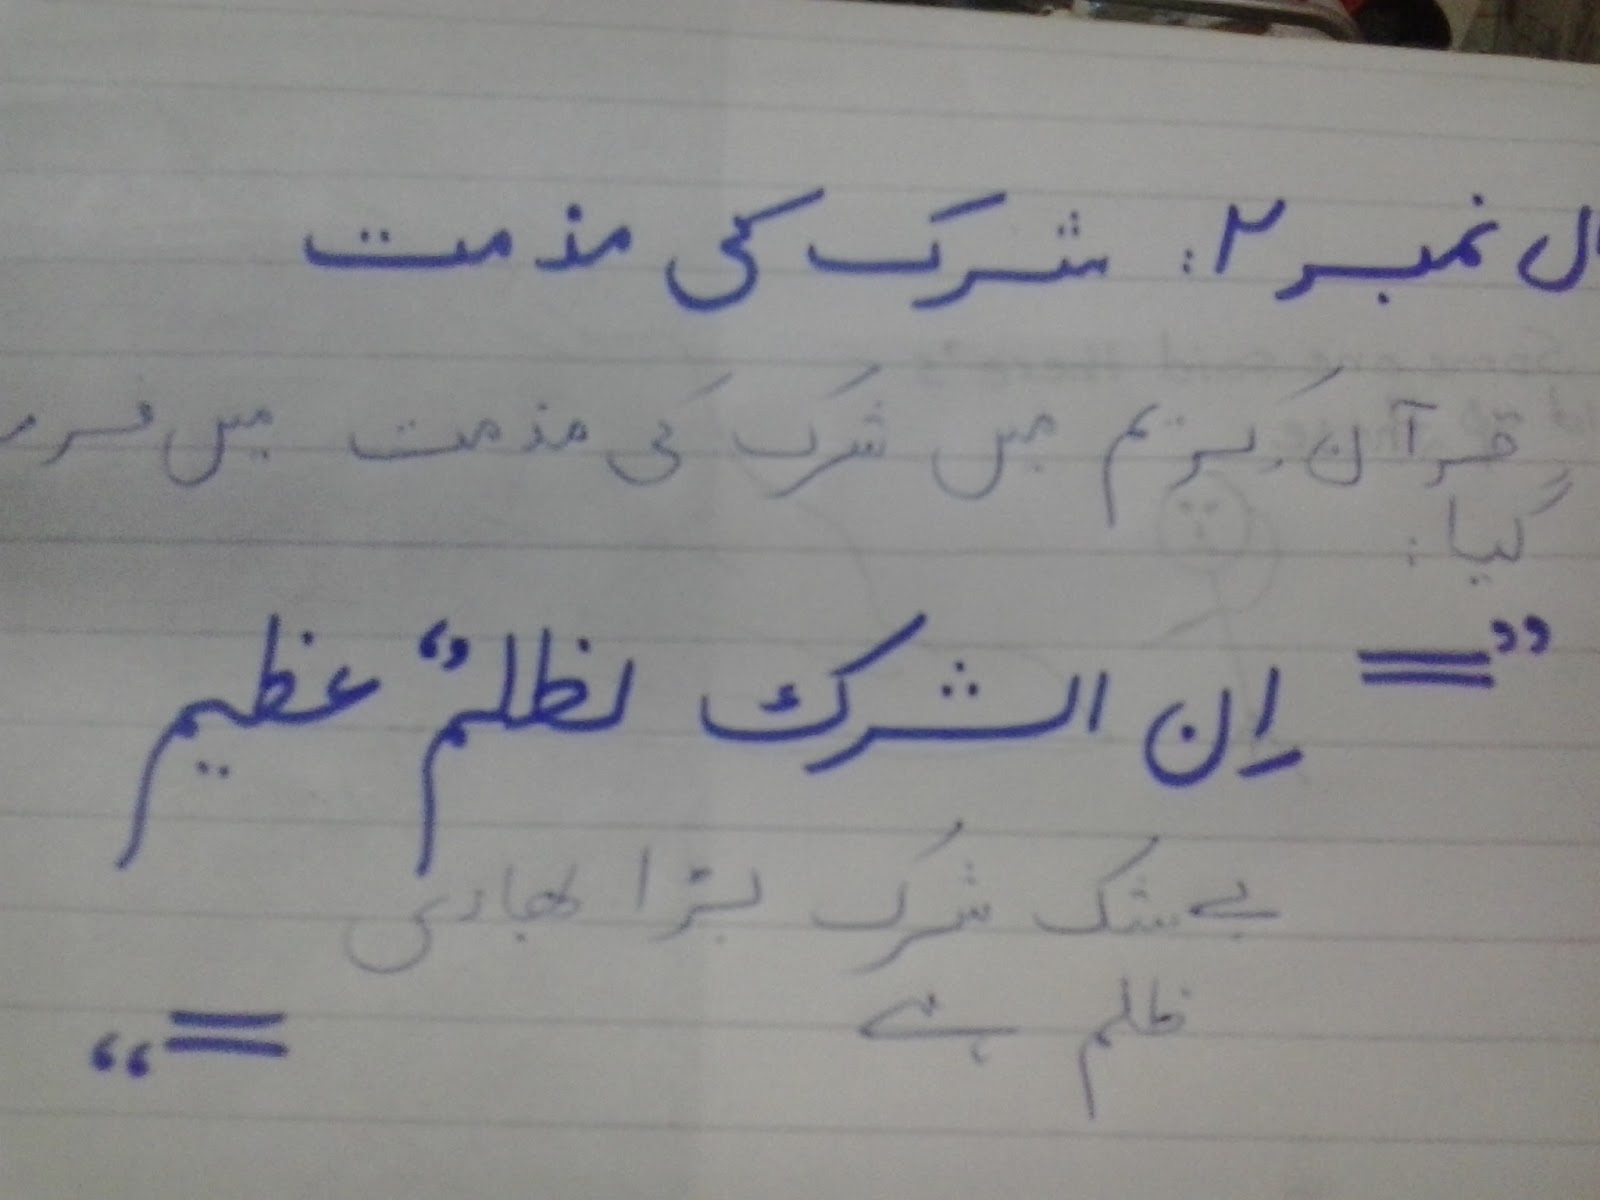 ال نمبر ۲: شرک کی مذمت
قرآن کریم میں شرک کی مذمت میں فرر
گیا:
”= اِن الشرك لظلمٌ عظیم
بے شک شرک بڑا بھاری
ظلم ہے
=“